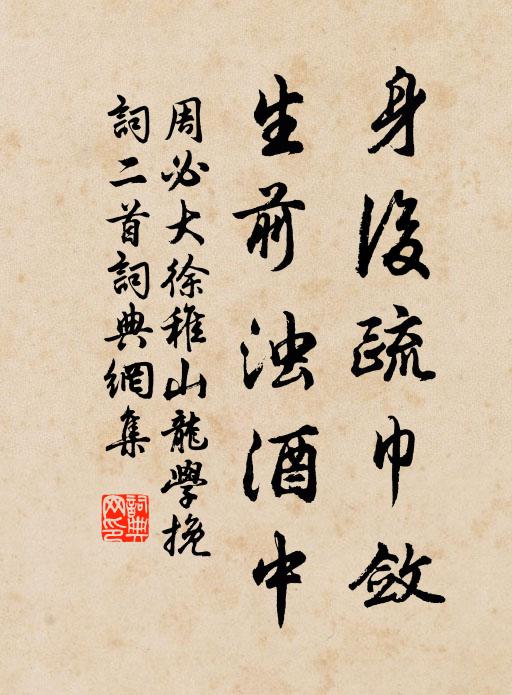 身後疏巾斂
生前浊酒中
周必大徐稚山龍學挽
詞二首詞典網集
詞典网印